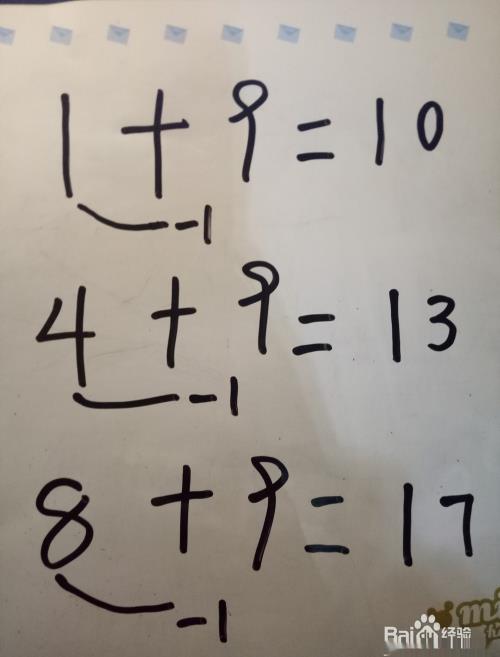 1 + 9 = 10
-1
4 + 9 = 13
-1
8 + 9 = 17
-1
Bai 经验